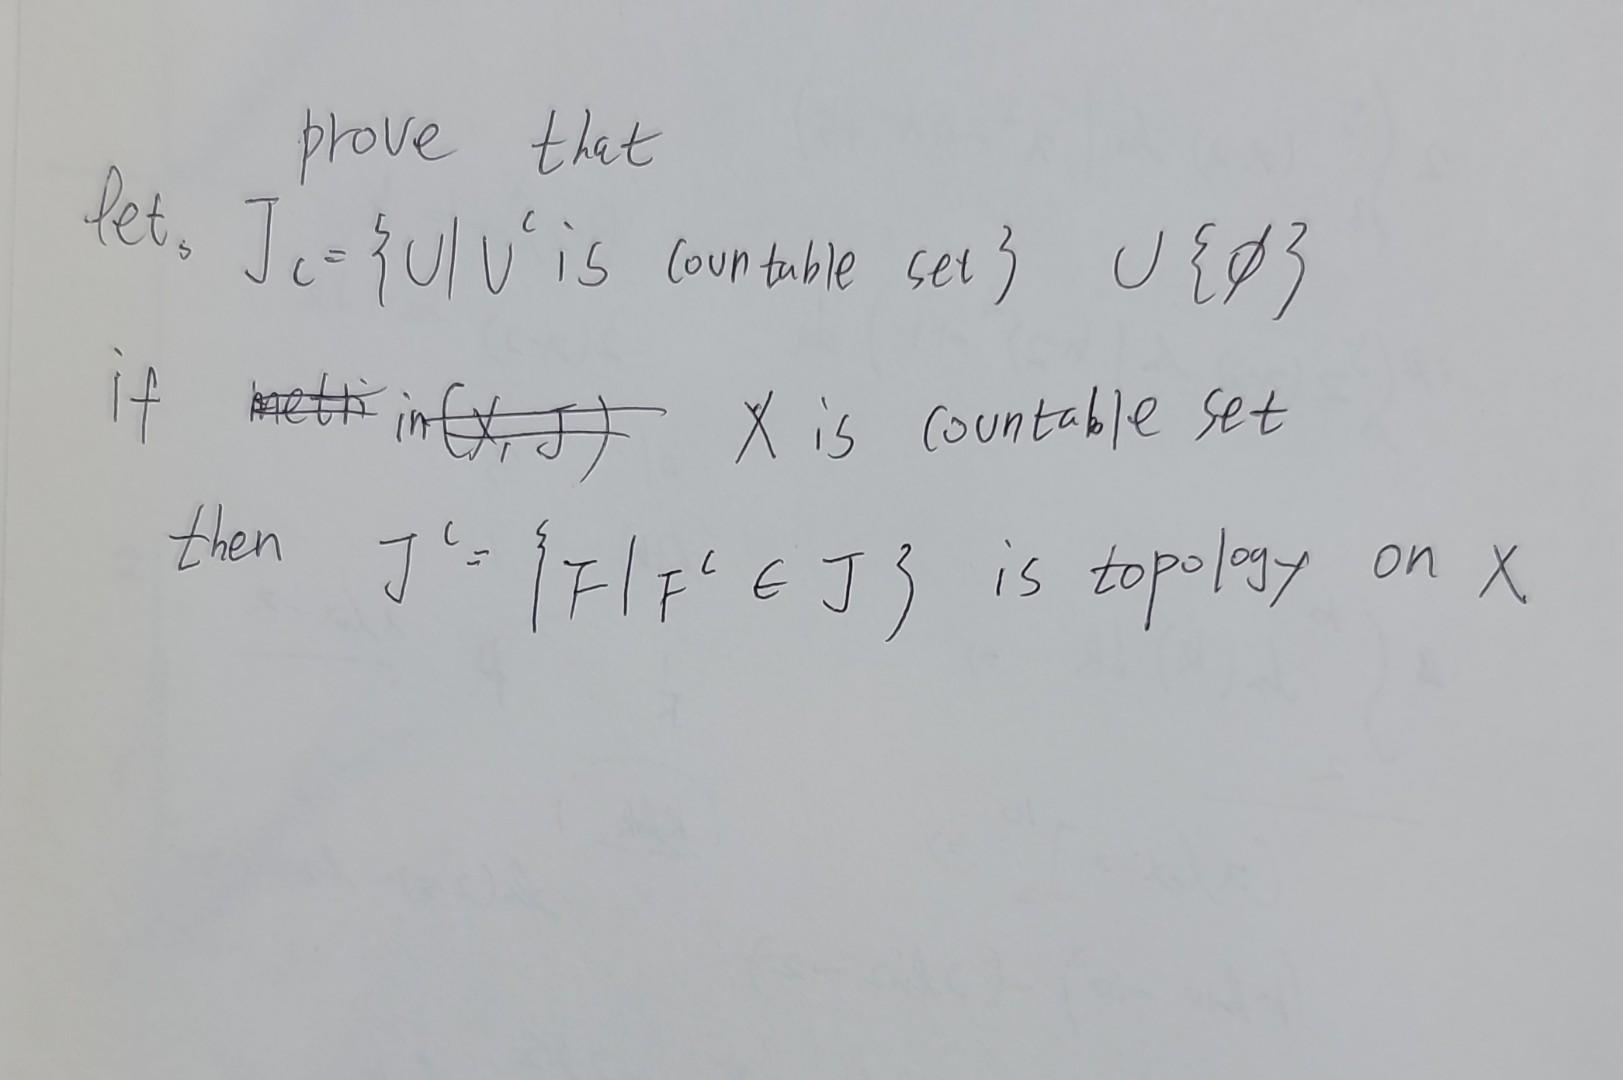 prove that
let, J_c = {U | U^c is countable set} ∪ {∅}
if X is countable set
then J^c = {F | F^c ∈ J} is topology on X